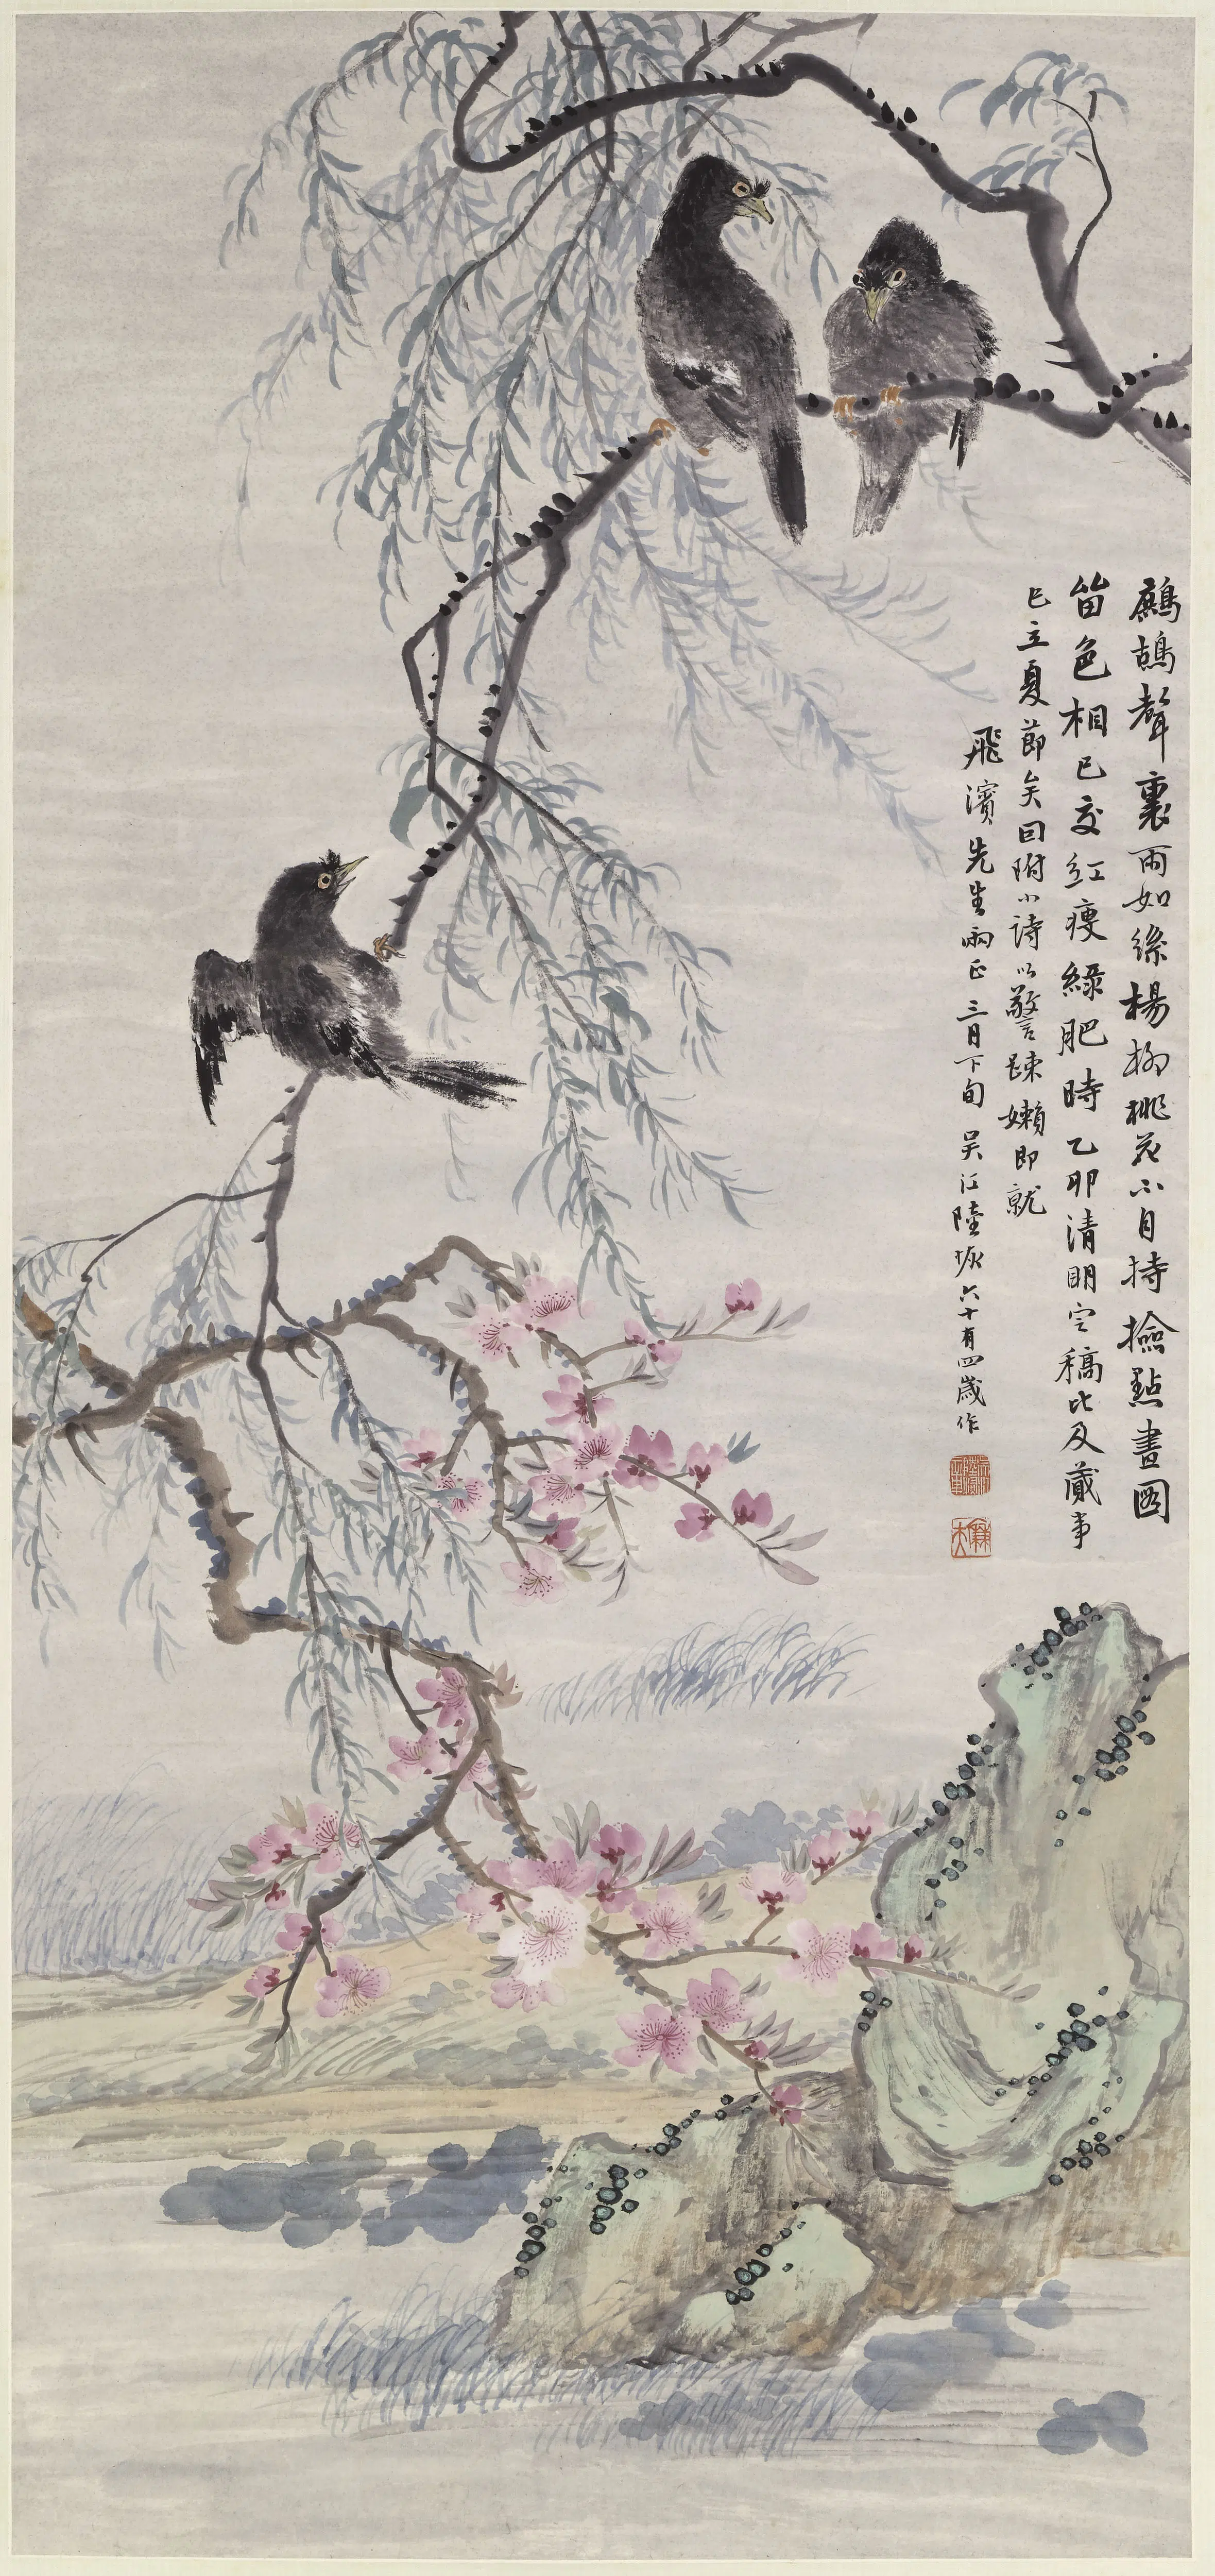 鷓鴣聲裏雨如絲楊柳桃花不自持撿點畫圖
留色相已交紅瘦綠肥時乙卯清明定稿比及蕆事
已立夏節矣囙附小詩以警疎嬾即就
飛濱先生兩正三月下旬吳江陸恢六十有四歲作
廉夫